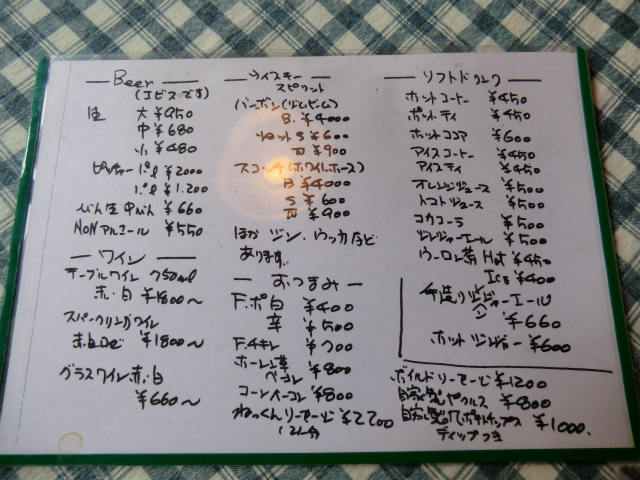 Beer
(エビスです)
生 大 ¥950
中 ¥680
小 ¥480
ピッチャー ¥2000
¥1.200
びん生 中びん ¥660
NONアルコール ¥550
ワイン
テーブルワイン 750ml
赤・白 ¥1800〜
スパークリングワイン
赤白ロゼ ¥1800〜
グラスワイン 赤・白
¥660〜
ウイスキー
スピリット
バーボン(ジムビーム)
B. ¥4000
S ¥600
W ¥900
スコッチ(ホワイトホース)
B ¥4000
S ¥600
W ¥900
ほか ジン、ウッカなど
あります。
おつまみ
F.ポ 白 ¥400
辛 ¥500
F.チキン ¥700
ホーレン草
ベーコン ¥800
コーンベーコン ¥800
ねっくんソーセージ ¥2200
ソフトドリンク
ホットコーヒー ¥450
ホットティ ¥450
ホットココア ¥600
アイスコーヒー ¥450
アイスティ ¥450
オレンジジュース ¥500
トマトジュース ¥500
コカコーラ ¥500
ジンジャーエール ¥500
ウーロン茶 Hot ¥450
Ice ¥400
手造りジンジャーエール
¥660
ホットジンジャー ¥600
ボイルドソーセージ ¥1200
自家製ピクルス ¥800
自家製ポテトチップス ¥1000.
ディップつき